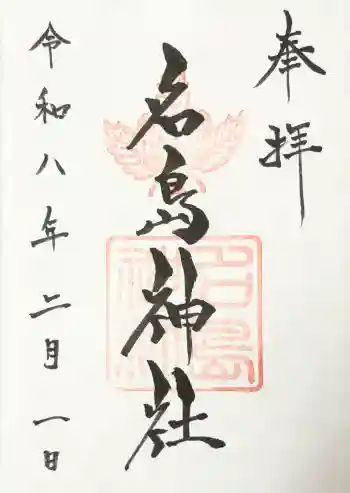 奉拝
名島神社
名島神社
令和八年二月一日